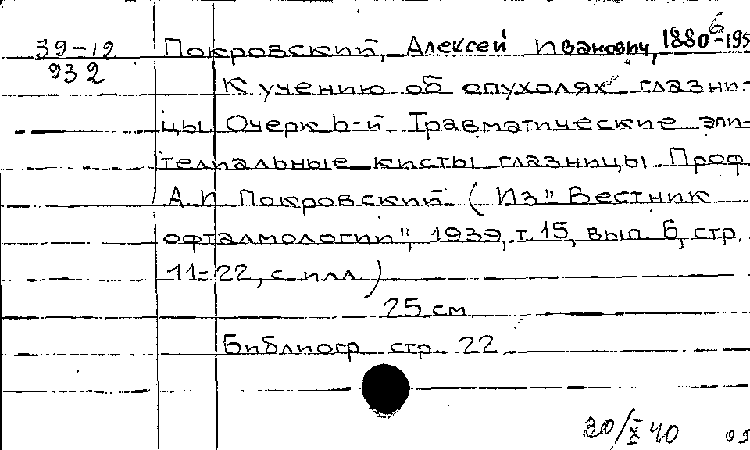 39-19
932
Покровский, Алексей Иванович, 1880-195
К учению об опухолях глазни-
цы. Очерк 6-й. Травматические эпи-
телиальные кисты глазницы. Проф.
А. И. Покровский. (Из "Вестник
офталмологии", 1939, т. 15, вып. 6, стр.
11-22, с илл.)
25 см
Библиогр. стр. 22